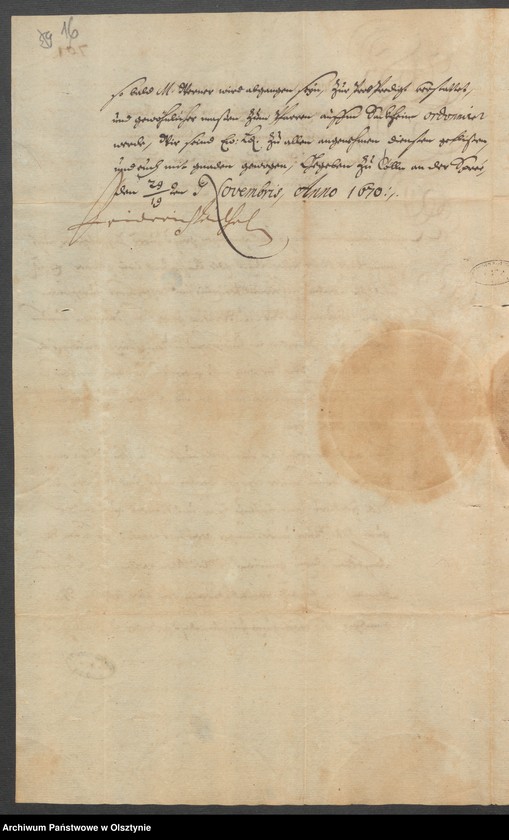 16
so bald M. Werner wird abgangen seyn, zur Prob Predigt verstattet,
und gewöhnlicher massen zum Pfarrer auffm Sackheim ordiniret
werde, Wir seind Ew. Ld. zu allen angenehmen diensten geflissen
und euch mit gnaden gewogen, Gegeben zu Cölln an der Spree,
den 29/19 Novembris, Anno 1670.
Friedrich Wilhelm
Archiwum Państwowe w Olsztynie